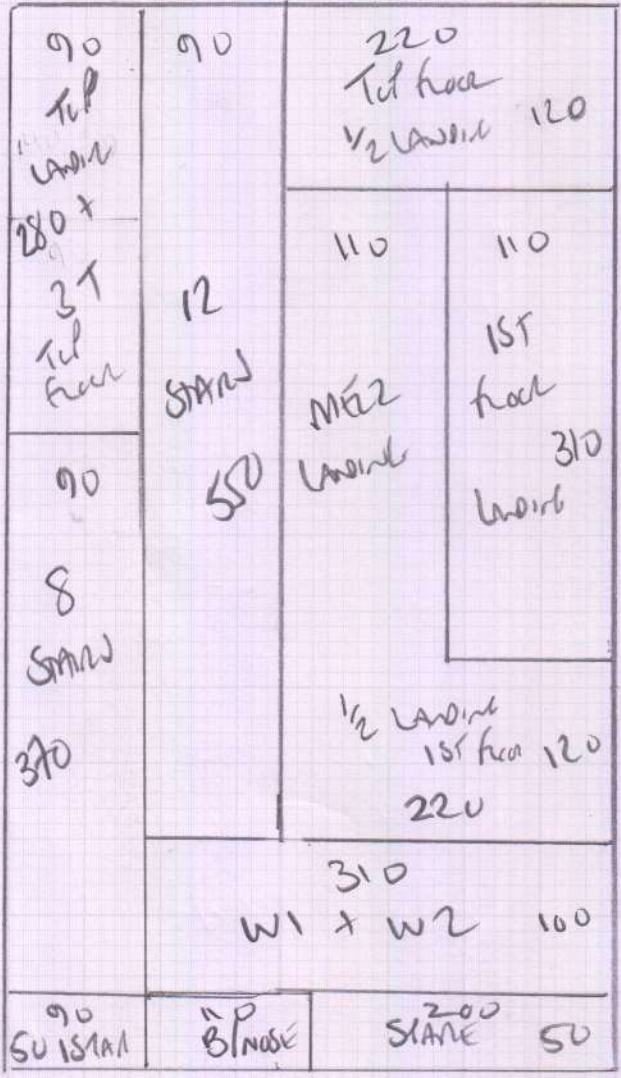 90
TOP
LANDING
280 x
3T
TOP
FLOOR
90
8
STAIRS
370
90
12
STAIRS
550
220
TOP FLOOR
1/2 LANDING 120
110
MEZZ
LANDING
110
1ST
FLOOR
310
LANDING
1/2 LANDING
1ST FLOOR 120
220
310
W1 + W2 100
90
50 1STAIR
110
B/NOSE
200
SPARE 50